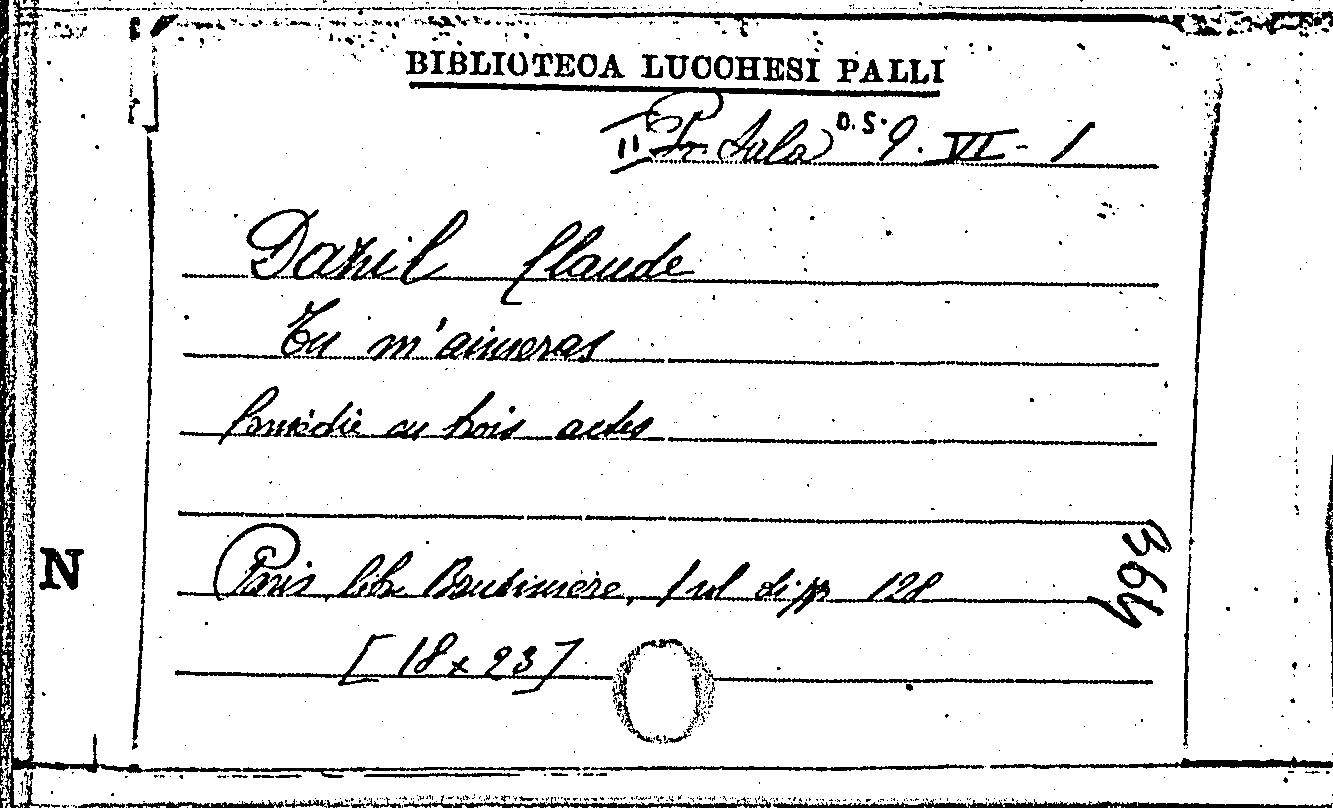 BIBLIOTECA LUCCHESI PALLI
II Pr. Sala D.S. 9. VI - 1
Dazil Claude
Tu m'aimeras
Comédie en trois actes
N
Paris, libr Brutinière, 1 vol di pp 128
364
[18 x 23]